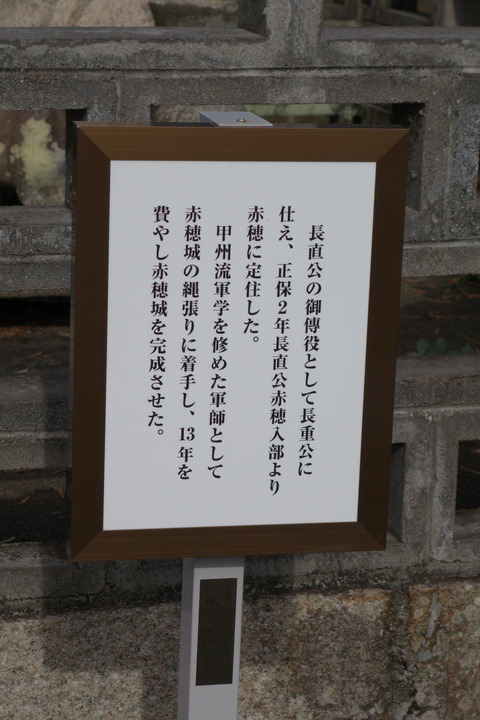 長直公の御傳役として長重公に
仕え、正保2年長直公赤穂入部より
赤穂に定住した。
甲州流軍学を修めた軍師として
赤穂城の縄張りに着手し、13年を
費やし赤穂城を完成させた。